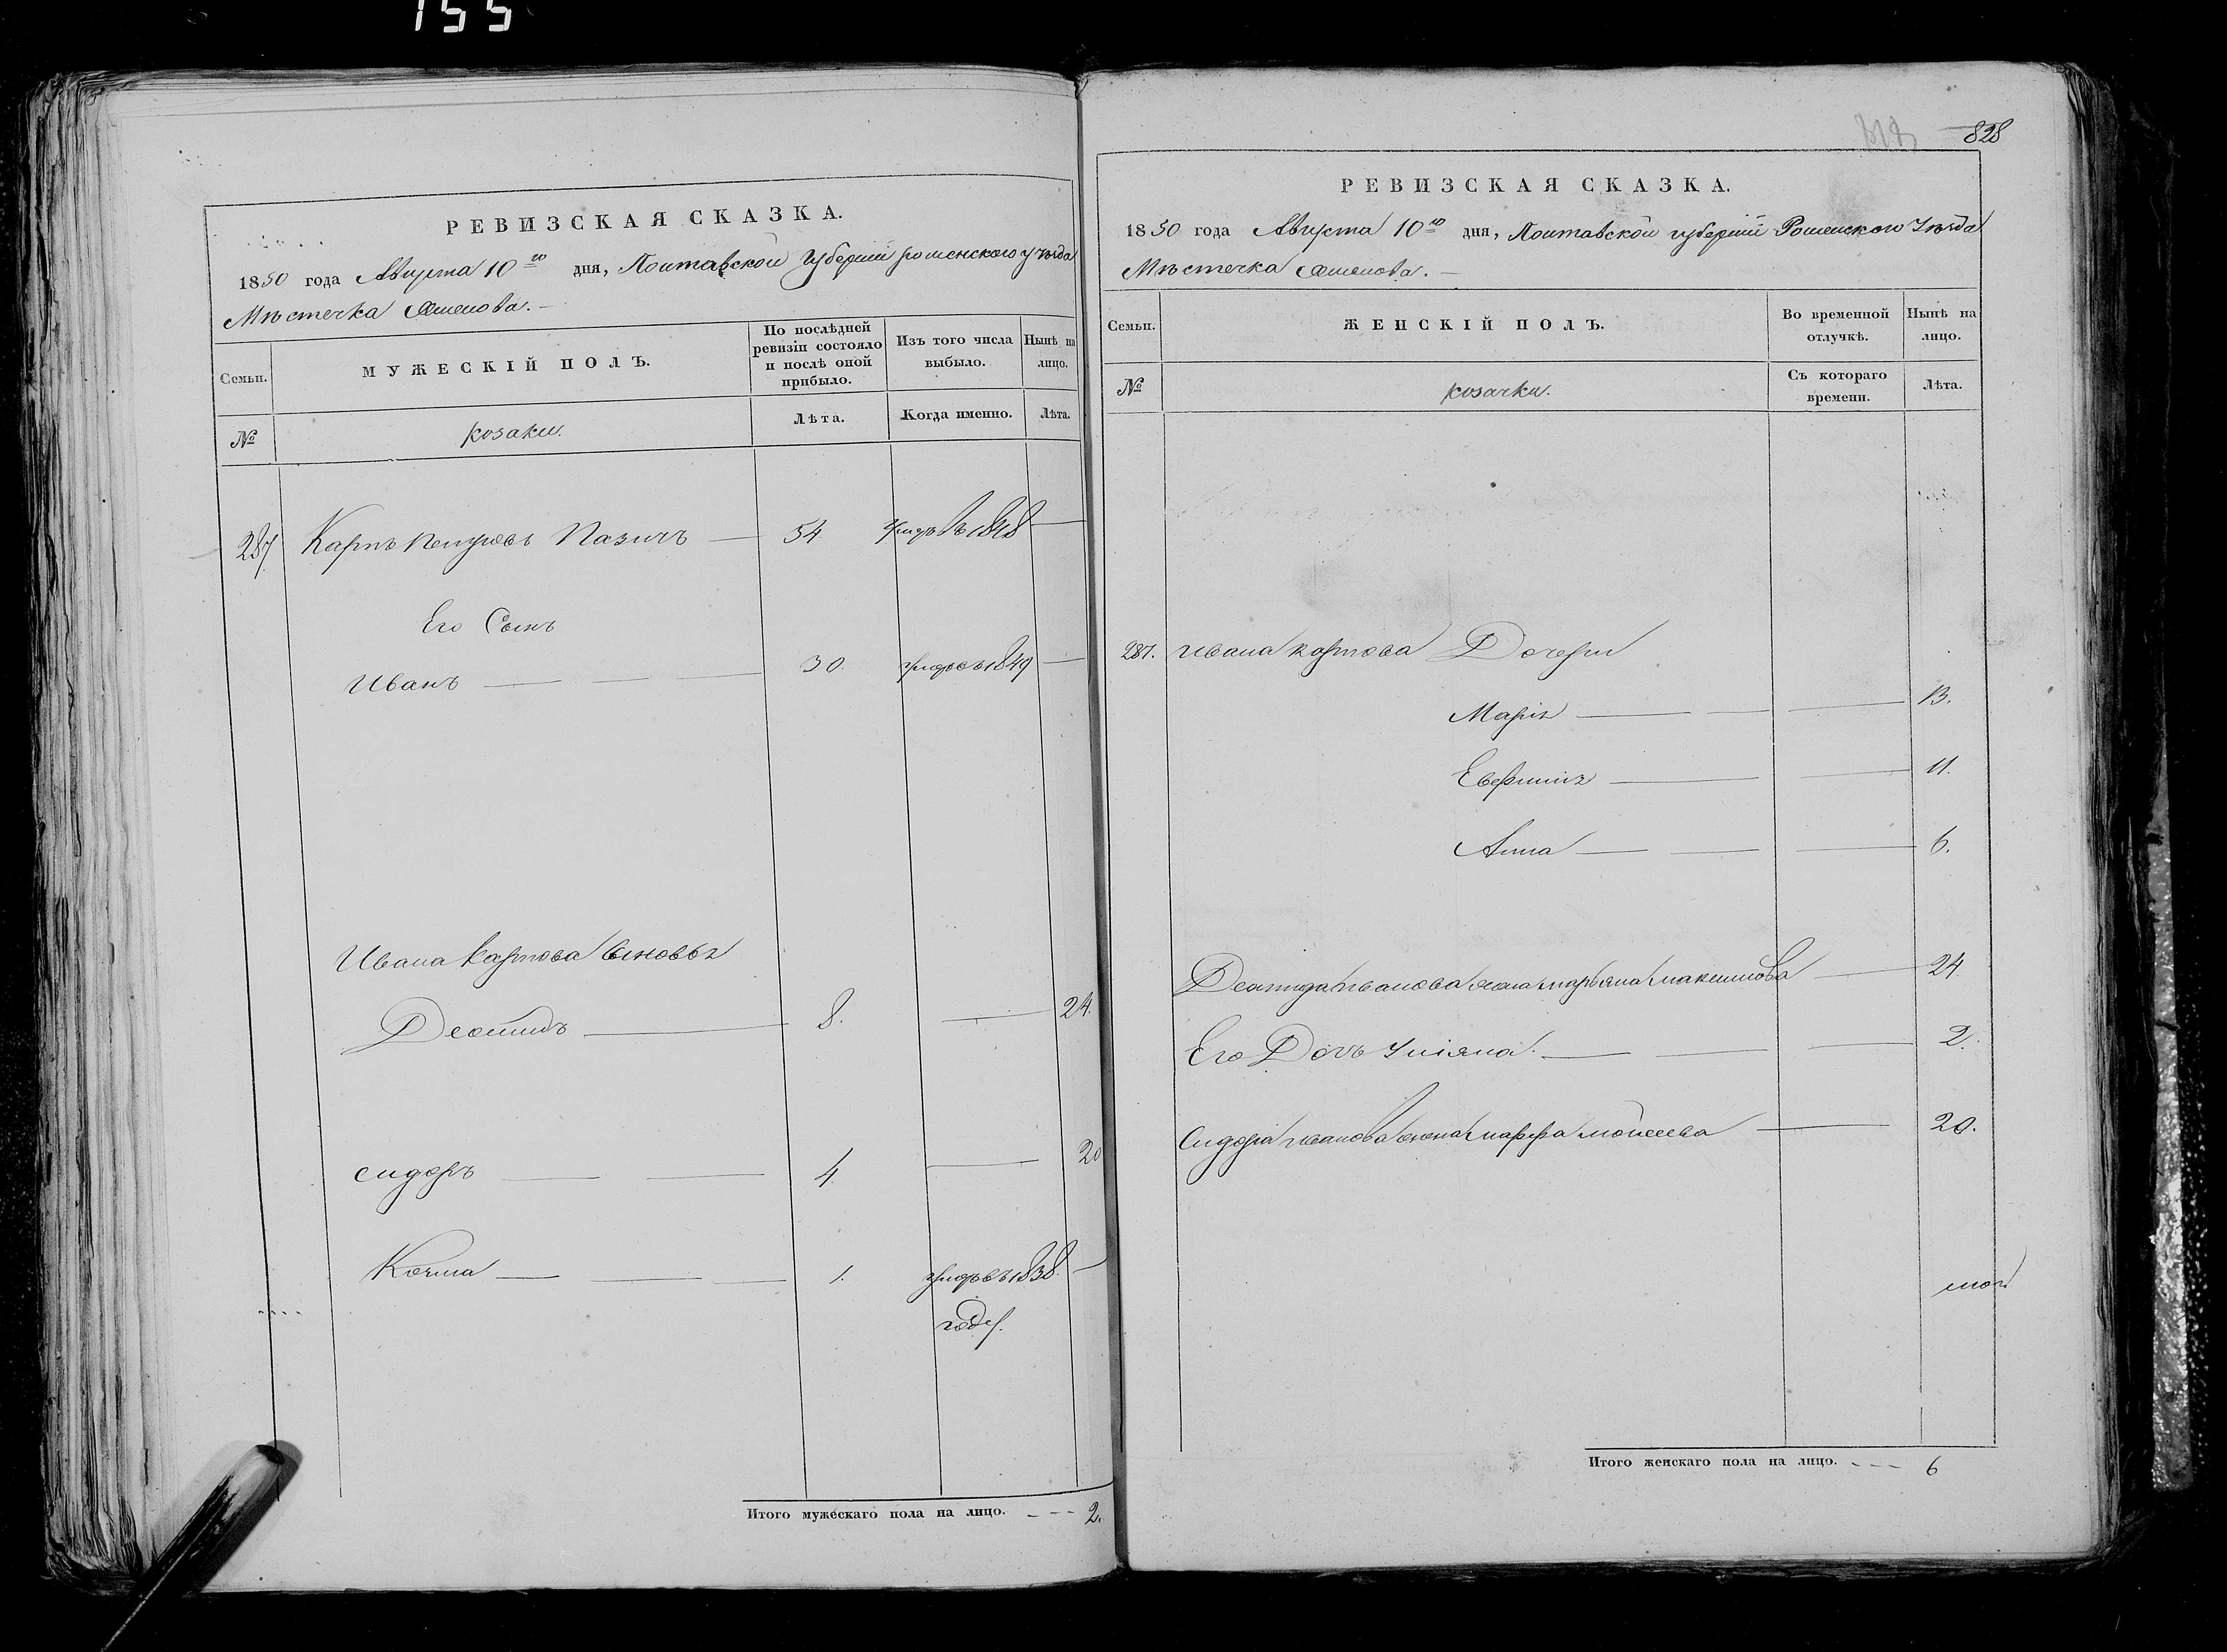 155
РЕВИЗСКАЯ СКАЗКА.
1850 года Августа 10го дня, Полтавской Губерніи роменского уѣзда
Мѣстечка
Семьи.
МУЖЕСКІЙ ПОЛЪ.
По послѣдней ревизіи состояло и послѣ оной прибыло.
Изъ того числа выбыло.
Нынѣ на лицо.
№
козаки.
Лѣта.
Когда именно.
Лѣта.
287. Карпъ Петровъ Пазичъ — 54 умръ въ 1848 —
Его Сынъ
Иванъ — 30. умръ въ 1849 —
Ивана Карпова Сыновья
Леонидъ — 8. — 24.
Сидоръ — 4. — 20
Козма — 1. умръ въ 1838. —
году.
Итого мужескаго пола на лицо. --- 2.
828
РЕВИЗСКАЯ СКАЗКА.
1850 года Августа 10го дня, Полтавской губерніи Роменского Уѣзда
Мѣстечка
Семьи.
ЖЕНСКІЙ ПОЛЪ.
Во временной отлучкѣ.
Нынѣ на лицо.
№
козачки.
Съ котораго времени.
Лѣта.
287. Ивана Карпова Дочери
Марія — 13.
Евфимія — 11.
Анна — 6.
Иванова жена Марьяна Максимова — 24
Его Дочь Уліяна. — 2.
Сидора Иванова жена Марфа Моисеева — 20.
Итого женскаго пола на лицо. --- 6